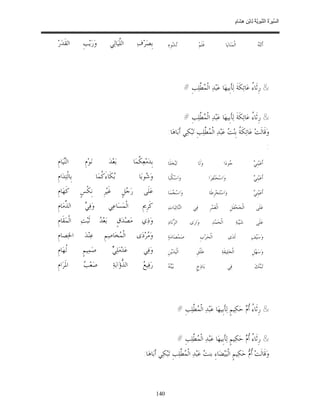 السِّيرَةُ النَّبَوِيَّةُ لِابْنِ هِشَامٍ
بِصَرْفِ اللَّيَالِي وَرَيْبِ القَدَرْ
& رِثَاءُ عَاتِكَةَ لِأَبِيهَا عَبْدِ الْمُطَّلِبِ #
& رِثَاءُ عَاتِكَةَ لِأَبِيهَا عَبْدِ الْمُطَّلِبِ #
وَقَالَتْ عَاتِكَةُ بِنْتُ عَبْدِ الْمُطَّلِبِ تَبْكِي أَبَاهَا
:
أَعَيْنَيَّ جُودَا وَلَا تَبْخَلَا بِدَمْعِكُمَا بَعْدَ نَوْمِ النِّيَامِ
أَعَيْنَيَّ وَاسْحَنْفِرَا وَاسْكُبَا وَشُوبَا بُكَاءَكُمَا بِالْتِدَامِ
أَعَيْنَيَّ وَاسْتَخْرِطَا وَاسْجُمَا عَلَى رَجُلٍ غَيْرِ نِكْسٍ كَهَامِ
عَلَى الْجَحْفَلِ الْغَمْرِ فِي النَّائِبَاتِ كَرِيمِ الْمَسَاعِي وَفِيِّ الذِّمَامِ
عَلَى شَيْبَةِ الْحَمْدِ وَارِي الزِّنَادِ وَذِي مَصْدَقٍ بَعْدُ ثَبْتِ الْمَقَامِ
وَسَيْفٍ لَدَى الْحَرْبِ صَمْصَامَةٍ وَمُرْدَى الْمُخَاصِمِ عِنْدَ الْخِصَامِ
وَسَهْلِ الْخَلِيقَةِ طَلْقِ الْيَدَيْنِ وَفِي عَدْمَلِيٍّ صَمِيمٍ لُهَامِ
تَبَنَّكَ فِي بَاذِخٍ بَيْتُهُ رَفِيعُ الذُّؤَابَةِ صَعْبُ الْمَرَامِ
& رِثَاءُ أُمِّ حَكِيمٍ لِأَبِيهَا عَبْدِ الْمُطَّلِبِ #
& رِثَاءُ أُمِّ حَكِيمٍ لِأَبِيهَا عَبْدِ الْمُطَّلِبِ #
وَقَالَتْ أُمُّ حَكِيمٍ الْبَيْضَاءِ بِنْتُ عَبْدِ الْمُطَّلِبِ تَبْكِي أَبَاهَا
:
140